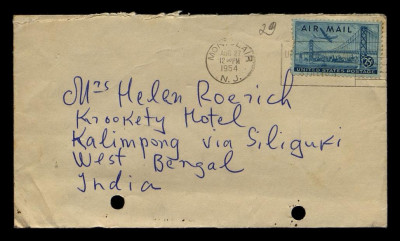 29
AIR MAIL
UNITED STATES POSTAGE
25¢
MONTCLAIR
12-PM
1954
N. J.
Mrs Helen Roerich
Krookety Hotel
Kalimpong via Siliguri
West Bengal
India